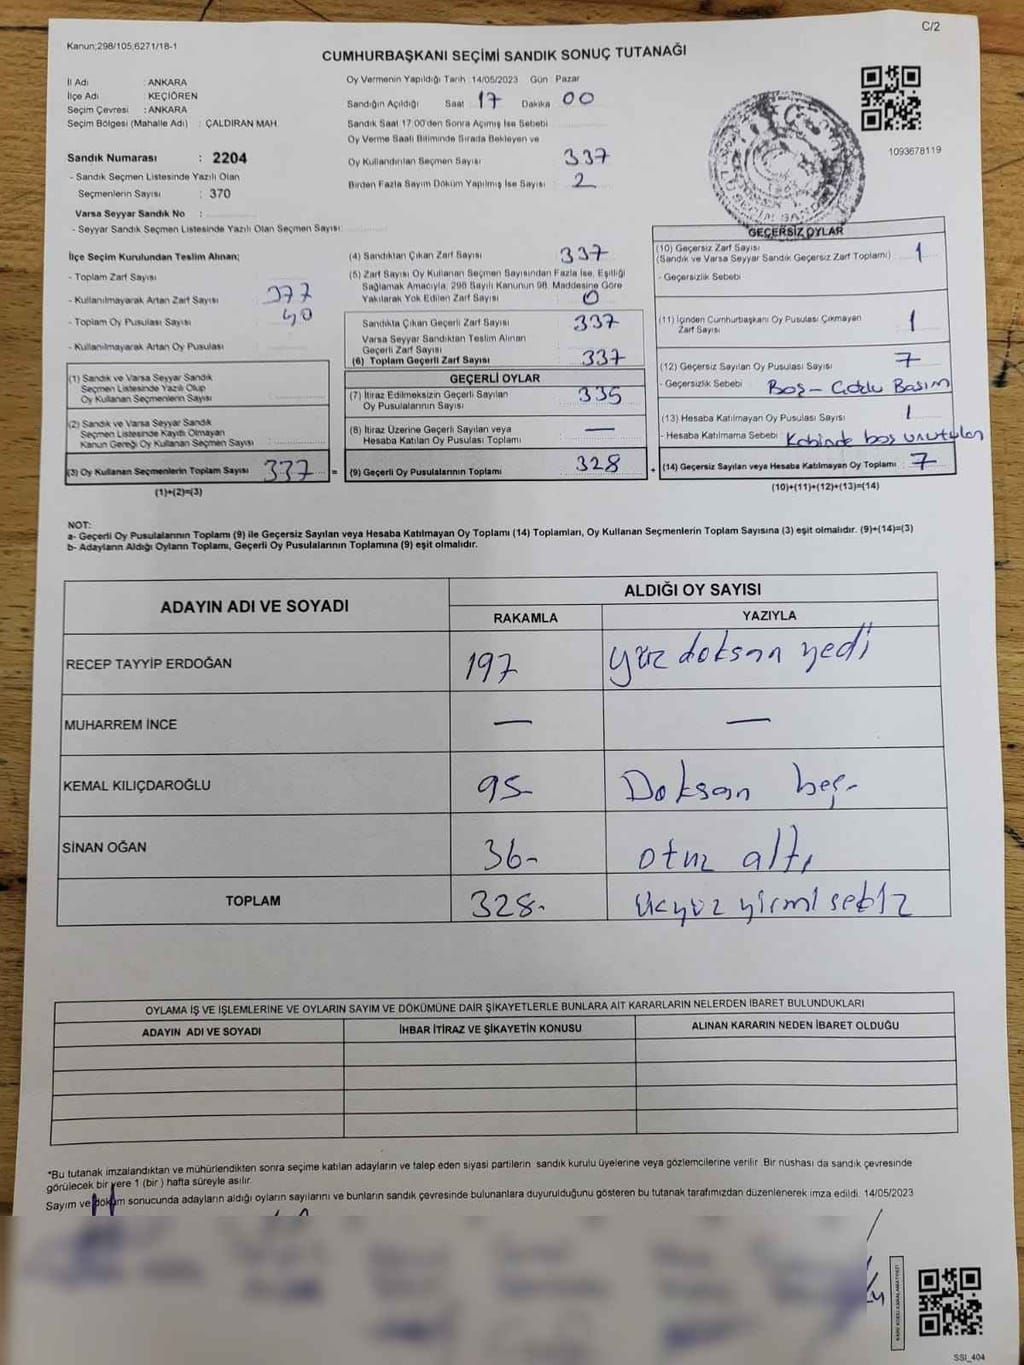 C/2
Kanun;298/105,6271/18-1
CUMHURBAŞKANI SEÇİMİ SANDIK SONUÇ TUTANAĞI
İl Adı : ANKARA
İlçe Adı : KEÇİÖREN
Seçim Çevresi : ANKARA
Seçim Bölgesi (Mahalle Adı) : ÇALDIRAN MAH.
Sandık Numarası : 2204
- Sandık Seçmen Listesinde Yazılı Olan
Seçmenlerin Sayısı : 370
Varsa Seyyar Sandık No :
- Seyyar Sandık Seçmen Listesinde Yazılı Olan Seçmen Sayısı:
Oy Vermenin Yapıldığı Tarih 14/05/2023 Gün : Pazar
Sandığın Açıldığı Saat 17 Dakika 00
Sandık Saat 17:00'den Sonra Açımış İse Sebebi
Oy Verme Saati Bitiminde Sırada Bekleyen ve
Oy Kullandırılan Seçmen Sayısı 337
Birden Fazla Sayım Döküm Yapılmış İse Sayısı 2
1093678119
İlçe Seçim Kurulundan Teslim Alınan;
- Toplam Zarf Sayısı
- Kullanılmayarak Artan Zarf Sayısı 377
- Toplam Oy Pusulası Sayısı 40
- Kullanılmayarak Artan Oy Pusulası
(1) Sandık ve Varsa Seyyar Sandık
Seçmen Listesinde Yazılı Olup
Oy Kullanan Seçmenlerin Sayısı
(2) Sandık ve Varsa Seyyar Sandık
Seçmen Listesinde Kayıtlı Olmayan
Kanun Gereği Oy Kullanan Seçmen Sayısı
(3) Oy Kullanan Seçmenlerin Toplam Sayısı 337 =
(1)+(2)=(3)
(4) Sandıktan Çıkan Zarf Sayısı 337
(5) Zarf Sayısı Oy Kullanan Seçmen Sayısından Fazla İse, Eşitliği
Sağlamak Amacıyla, 298 Sayılı Kanunun 98. Maddesine Göre
Yakılarak Yok Edilen Zarf Sayısı 0
Sandıkta Çıkan Geçerli Zarf Sayısı 337
Varsa Seyyar Sandıktan Teslim Alınan
Geçerli Zarf Sayısı
(6) Toplam Geçerli Zarf Sayısı 337
GEÇERLİ OYLAR
(7) İtiraz Edilmeksizin Geçerli Sayılan 335
Oy Pusulalarının Sayısı
(8) İtiraz Üzerine Geçerli Sayılan veya —
Hesaba Katılan Oy Pusulası Toplamı
(9) Geçerli Oy Pusulalarının Toplamı 328 +
GEÇERSİZ OYLAR
(10) Geçersiz Zarf Sayısı 1
(Sandık ve Varsa Seyyar Sandık Geçersiz Zarf Toplamı)
- Geçersizlik Sebebi
(11) İçinden Cumhurbaşkanı Oy Pusulası Çıkmayan 1
Zarf Sayısı
(12) Geçersiz Sayılan Oy Pusulası Sayısı 7
- Geçersizlik Sebebi : Boş - Basım
(13) Hesaba Katılmayan Oy Pusulası Sayısı 1
- Hesaba Katılmama Sebebi Kabinde boş unutulan
(14) Geçersiz Sayılan veya Hesaba Katılmayan Oy Toplamı : 7
(10)+(11)+(12)+(13)=(14)
NOT:
a- Geçerli Oy Pusulalarının Toplamı (9) ile Geçersiz Sayılan veya Hesaba Katılmayan Oy Toplamı (14) Toplamları, Oy Kullanan Seçmenlerin Toplam Sayısına (3) eşit olmalıdır. (9)+(14)=(3)
b- Adayların Aldığı Oyların Toplamı, Geçerli Oy Pusulalarının Toplamına (9) eşit olmalıdır.
ADAYIN ADI VE SOYADI
ALDIĞI OY SAYISI
RAKAMLA YAZIYLA
RECEP TAYYİP ERDOĞAN 197 yüz doksan yedi
MUHARREM İNCE — —
KEMAL KILIÇDAROĞLU 95- Doksan beş-
SİNAN OĞAN 36- otuz altı
TOPLAM 328- üçyüz yirmi sekiz
OYLAMA İŞ VE İŞLEMLERİNE VE OYLARIN SAYIM VE DÖKÜMÜNE DAİR ŞİKAYETLERLE BUNLARA AİT KARARLARIN NELERDEN İBARET BULUNDUKLARI
ADAYIN ADI VE SOYADI İHBAR İTİRAZ VE ŞİKAYETİN KONUSU ALINAN KARARIN NEDEN İBARET OLDUĞU
*Bu tutanak imzalandıktan ve mühürlendikten sonra seçime katılan adayların ve talep eden siyasi partilerin sandık kurulu üyelerine veya gözlemcilerine verilir .Bir nüshası da sandık çevresinde
görülecek bir yere 1 (bir ) hafta süreyle asılır.
Sayım ve döküm sonucunda adayların aldığı oyların sayılarını ve bunların sandık çevresinde bulunanlara duyurulduğunu gösteren bu tutanak tarafımızdan düzenlenerek imza edildi. 14/05/2023
SSI_404